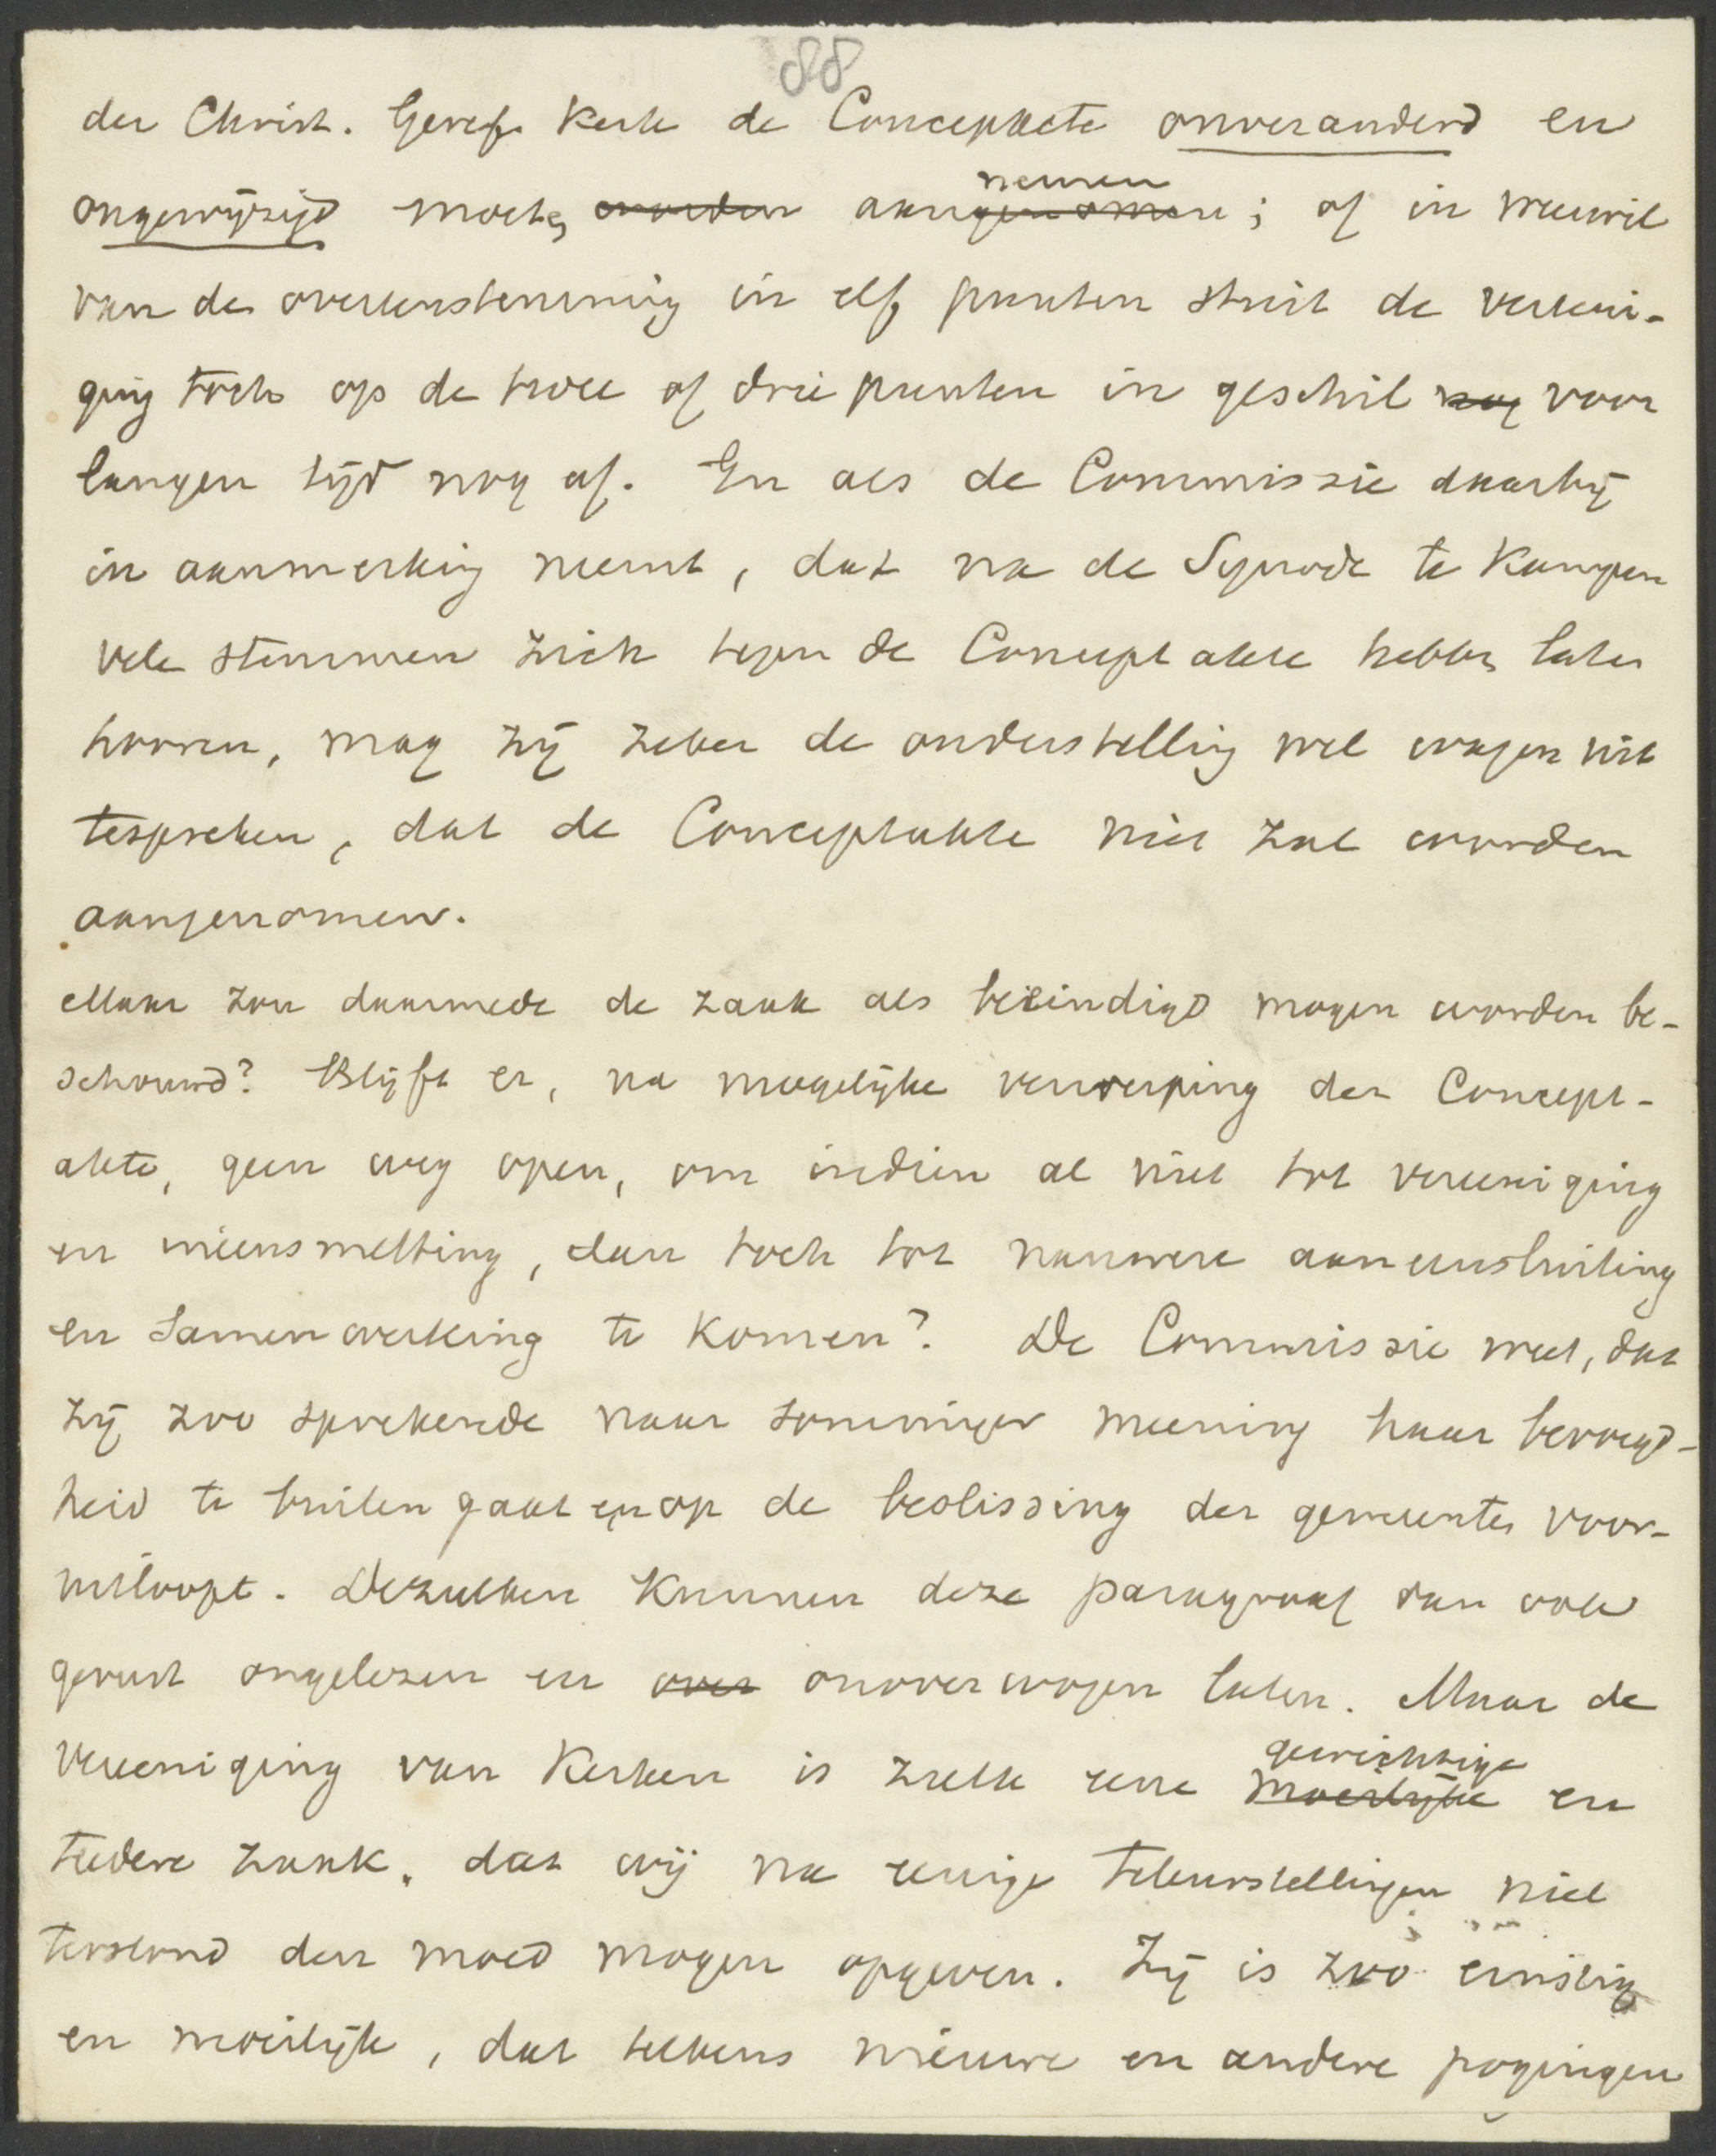 88
der Christ. Geref. Kerk de Conceptacte onveranderd en
ongewijzigd mocht worden aangenomen nemen; of in weerwil
van de overeenstemming in elf punten stuit de vereeni-
ging toch op de twee of drie punten in geschil nog voor
langen tijd nog af. En als de Commissie daarbij
in aanmerking neemt, dat na de Synode te Kampen
vele stemmen zich tegen de Concept akte hebben laten
hooren, mag zij zeker de onderstelling wel wagen uit
tespreken, dat de Conceptakte niet zal worden
aangenomen.
Maar zou daarmede de zaak als beëindigd mogen worden be-
schouwd? Blijft er, na mogelijke verwerping der Concept-
akte, geen weg open, om indien al niet tot vereeniging
en ineensmelting, dan toch tot nauwere aaneensluiting
en samenwerking te komen? De Commissie weet, dat
zij zoo sprekende naar sommiger meening haar bevoegd-
heid te buiten gaat en op de beslissing der gemeenten voor-
uitloopt. Dezulken kunnen deze paragraaf dan ook
gerust ongelezen en over onoverwogen laten. Maar de
Vereeniging van Kerken is zulk eene moeilijke gewichtige en
teedere zaak, dat wij na eenige teleurstellingen niet
terstond den moed mogen opgeven. Zij is zoo ernstig
en moeilijk, dat telkens nieuwe en andere pogingen